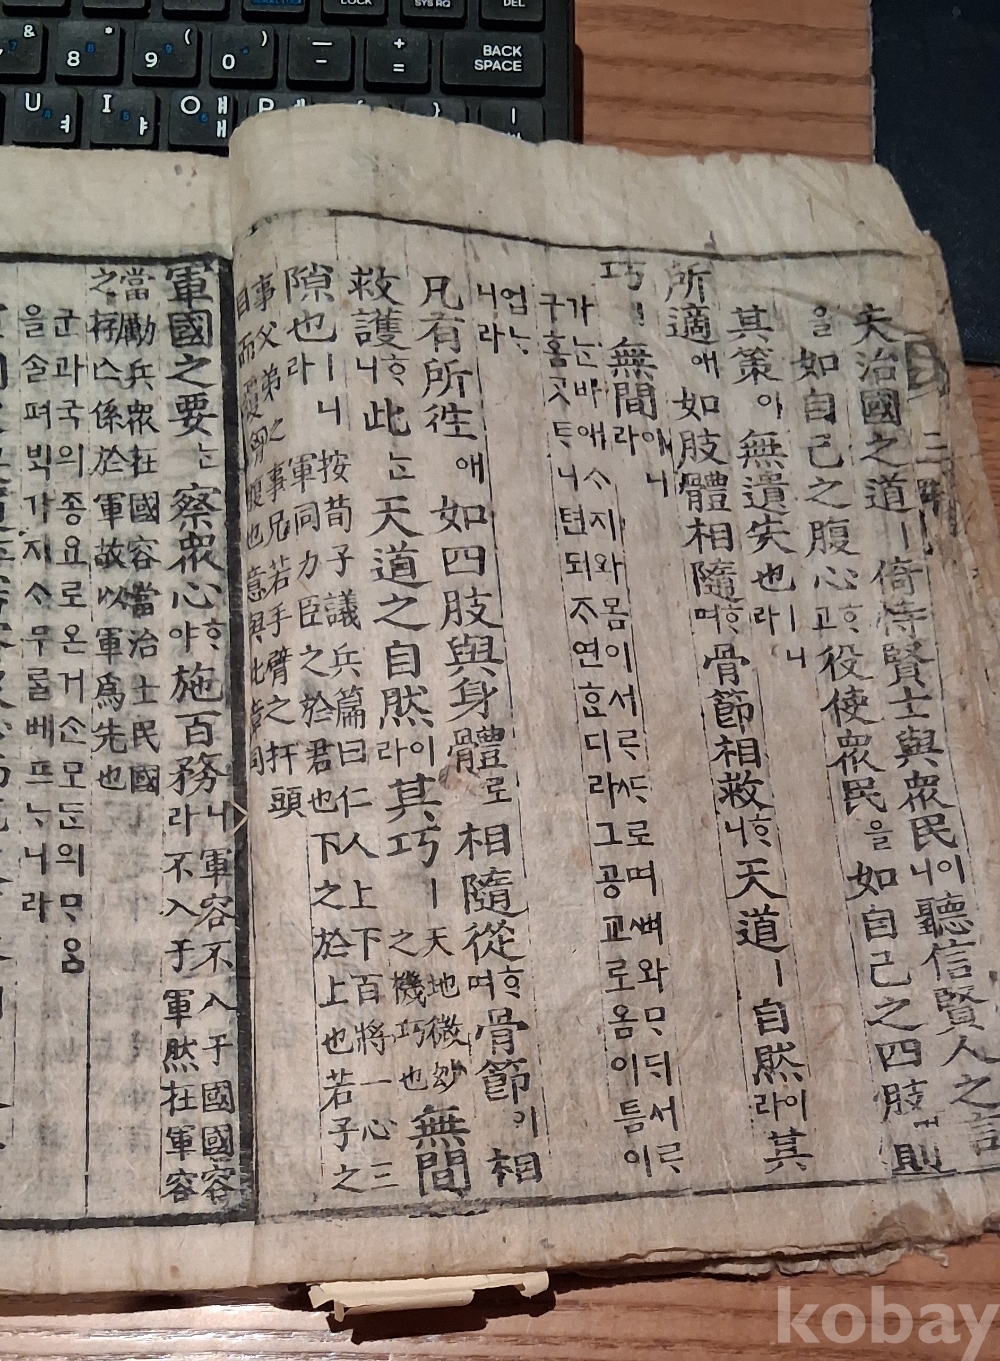 夫治國之道ㅣ倚恃賢士與衆民이니聽信賢人之言
을如自己之腹心ᄒᆞ고役使衆民을如自己之四肢ㅣ면則
其策이無遺失也ㅣ니라
所適애如肢體相隨ᄒᆞ며骨節相救ᄒᆞ니天道ㅣ自然이라其
巧ㅣ無間이니라
가ᄂᆞᆫ바애ᄉᆞ지와몸이서ᄅᆞᄯᆞ로며ᄲᅧ와ᄆᆞᄃᆡ서ᄅᆞ
구홈ᄀᆞᆺᄐᆞ니텬되ᄌᆞ연ᄒᆞ디라그공교로옴이틈이
업ᄂᆞ니라
凡有所往애如四肢與身體로相隨從ᄒᆞ며骨節이相
救護ᄒᆞ니此ᄂᆞᆫ天道之自然이라其巧ㅣ天地微妙之機巧也無間
隙也ㅣ니라按荀子議兵篇曰仁人上下百將一心三
軍同力臣之於君也下之於上也若子之
事父弟之事兄若手臂之扞頭
目而覆胷腹也意與此章同
軍國之要ᄂᆞᆫ察衆心ᄒᆞ야施百務니라軍容不入于國國容
不入于軍然在軍容
當勵兵衆在國容當治士民國
之存亡係於軍故以軍爲先也
군과국의종요로온거ᄉᆞᆫ모ᄃᆞᆫ의ᄆᆞᄋᆞᆷ
을ᄉᆞᆯ펴ᄇᆡᆨ가지ᄉᆞ무ᄅᆞᆯ베프ᄂᆞ니라
LOCK
SYS RQ
DEL
& 7
* 8
( 9
) 0
— -
+ =
BACK SPACE
U ㅕ
I ㅑ
O ㅐ
P
kobay